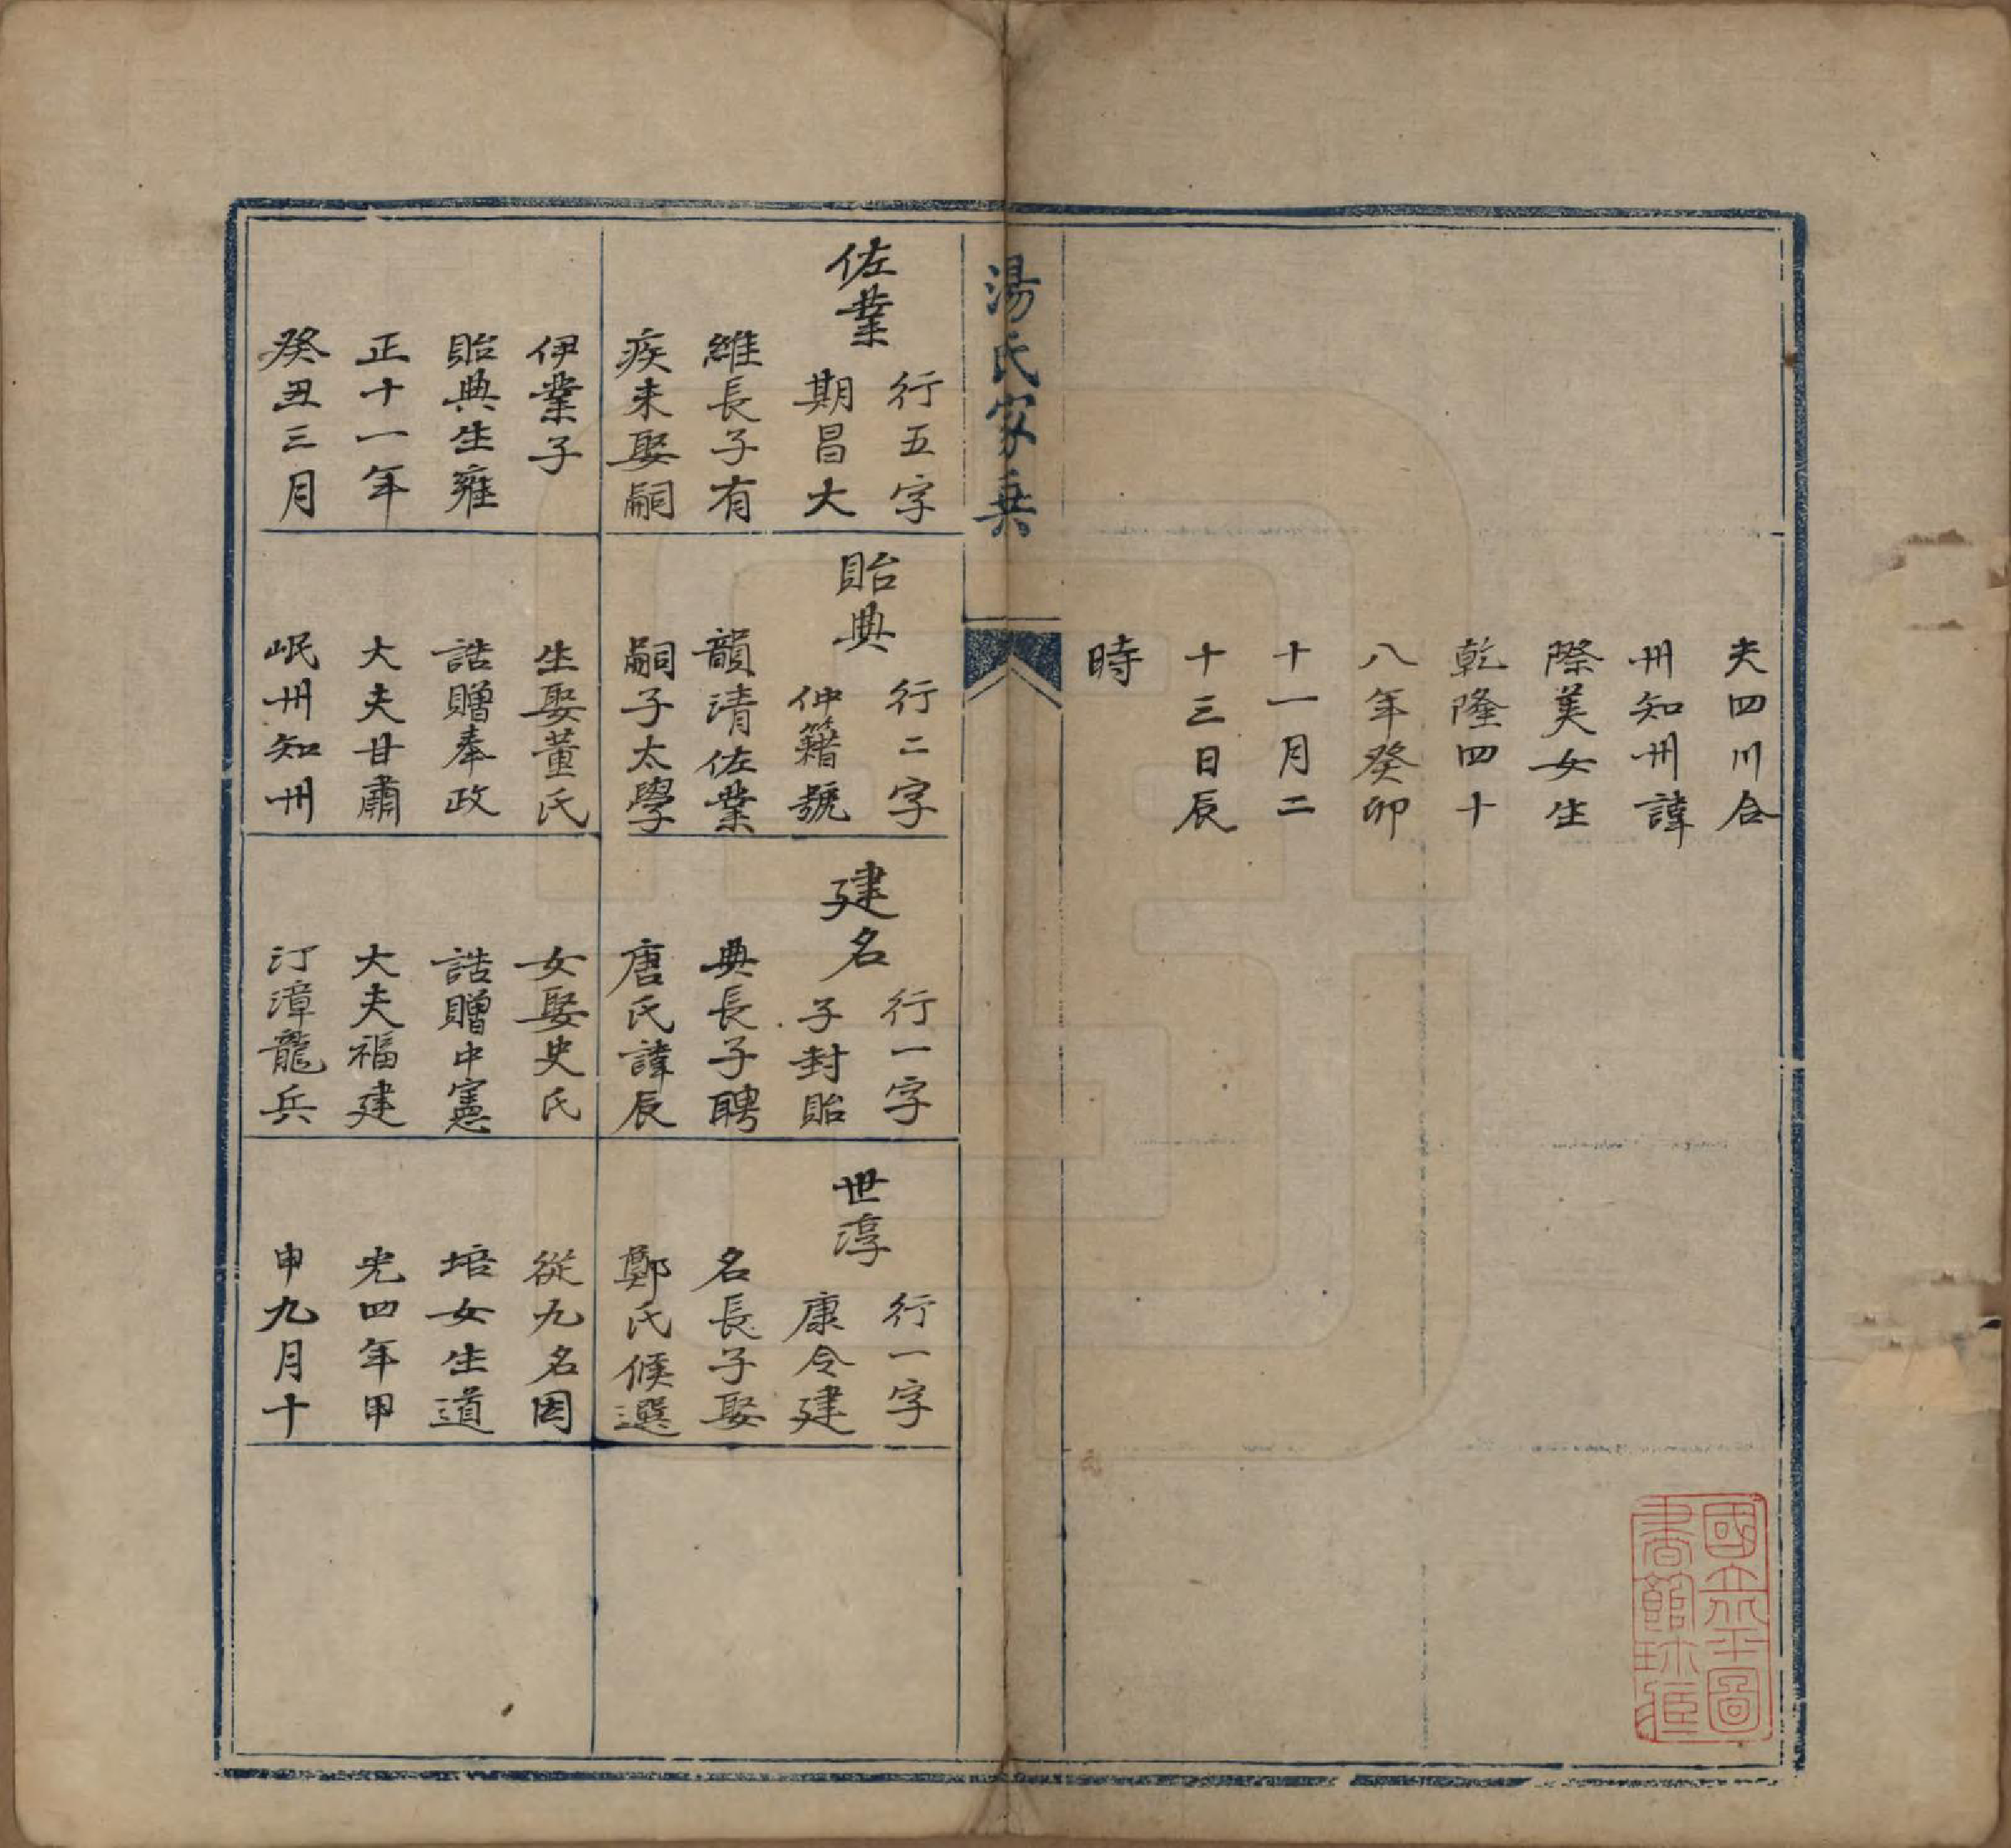 夫四川合
州知州諱
際美女生
乾隆四十
八年癸卯
十一月二
十三日辰
時
湯氏家乘
佐業
行五字
期昌大
維長子有
疾未娶嗣
伊業子
貽典生雍
正十一年
癸丑三月
貽典
行二字
仲籍號
韻清佐業
嗣子太學
生娶董氏
誥贈奉政
大夫甘肅
岷州知州
建名
行一字
子封貽
典長子聘
唐氏諱辰
女娶史氏
誥贈中憲
大夫福建
汀漳龍兵
世淳
行一字
康令建
名長子娶
鄭氏候選
從九名因
培女生道
光四年甲
申九月十
國立北平圖
書館珍藏